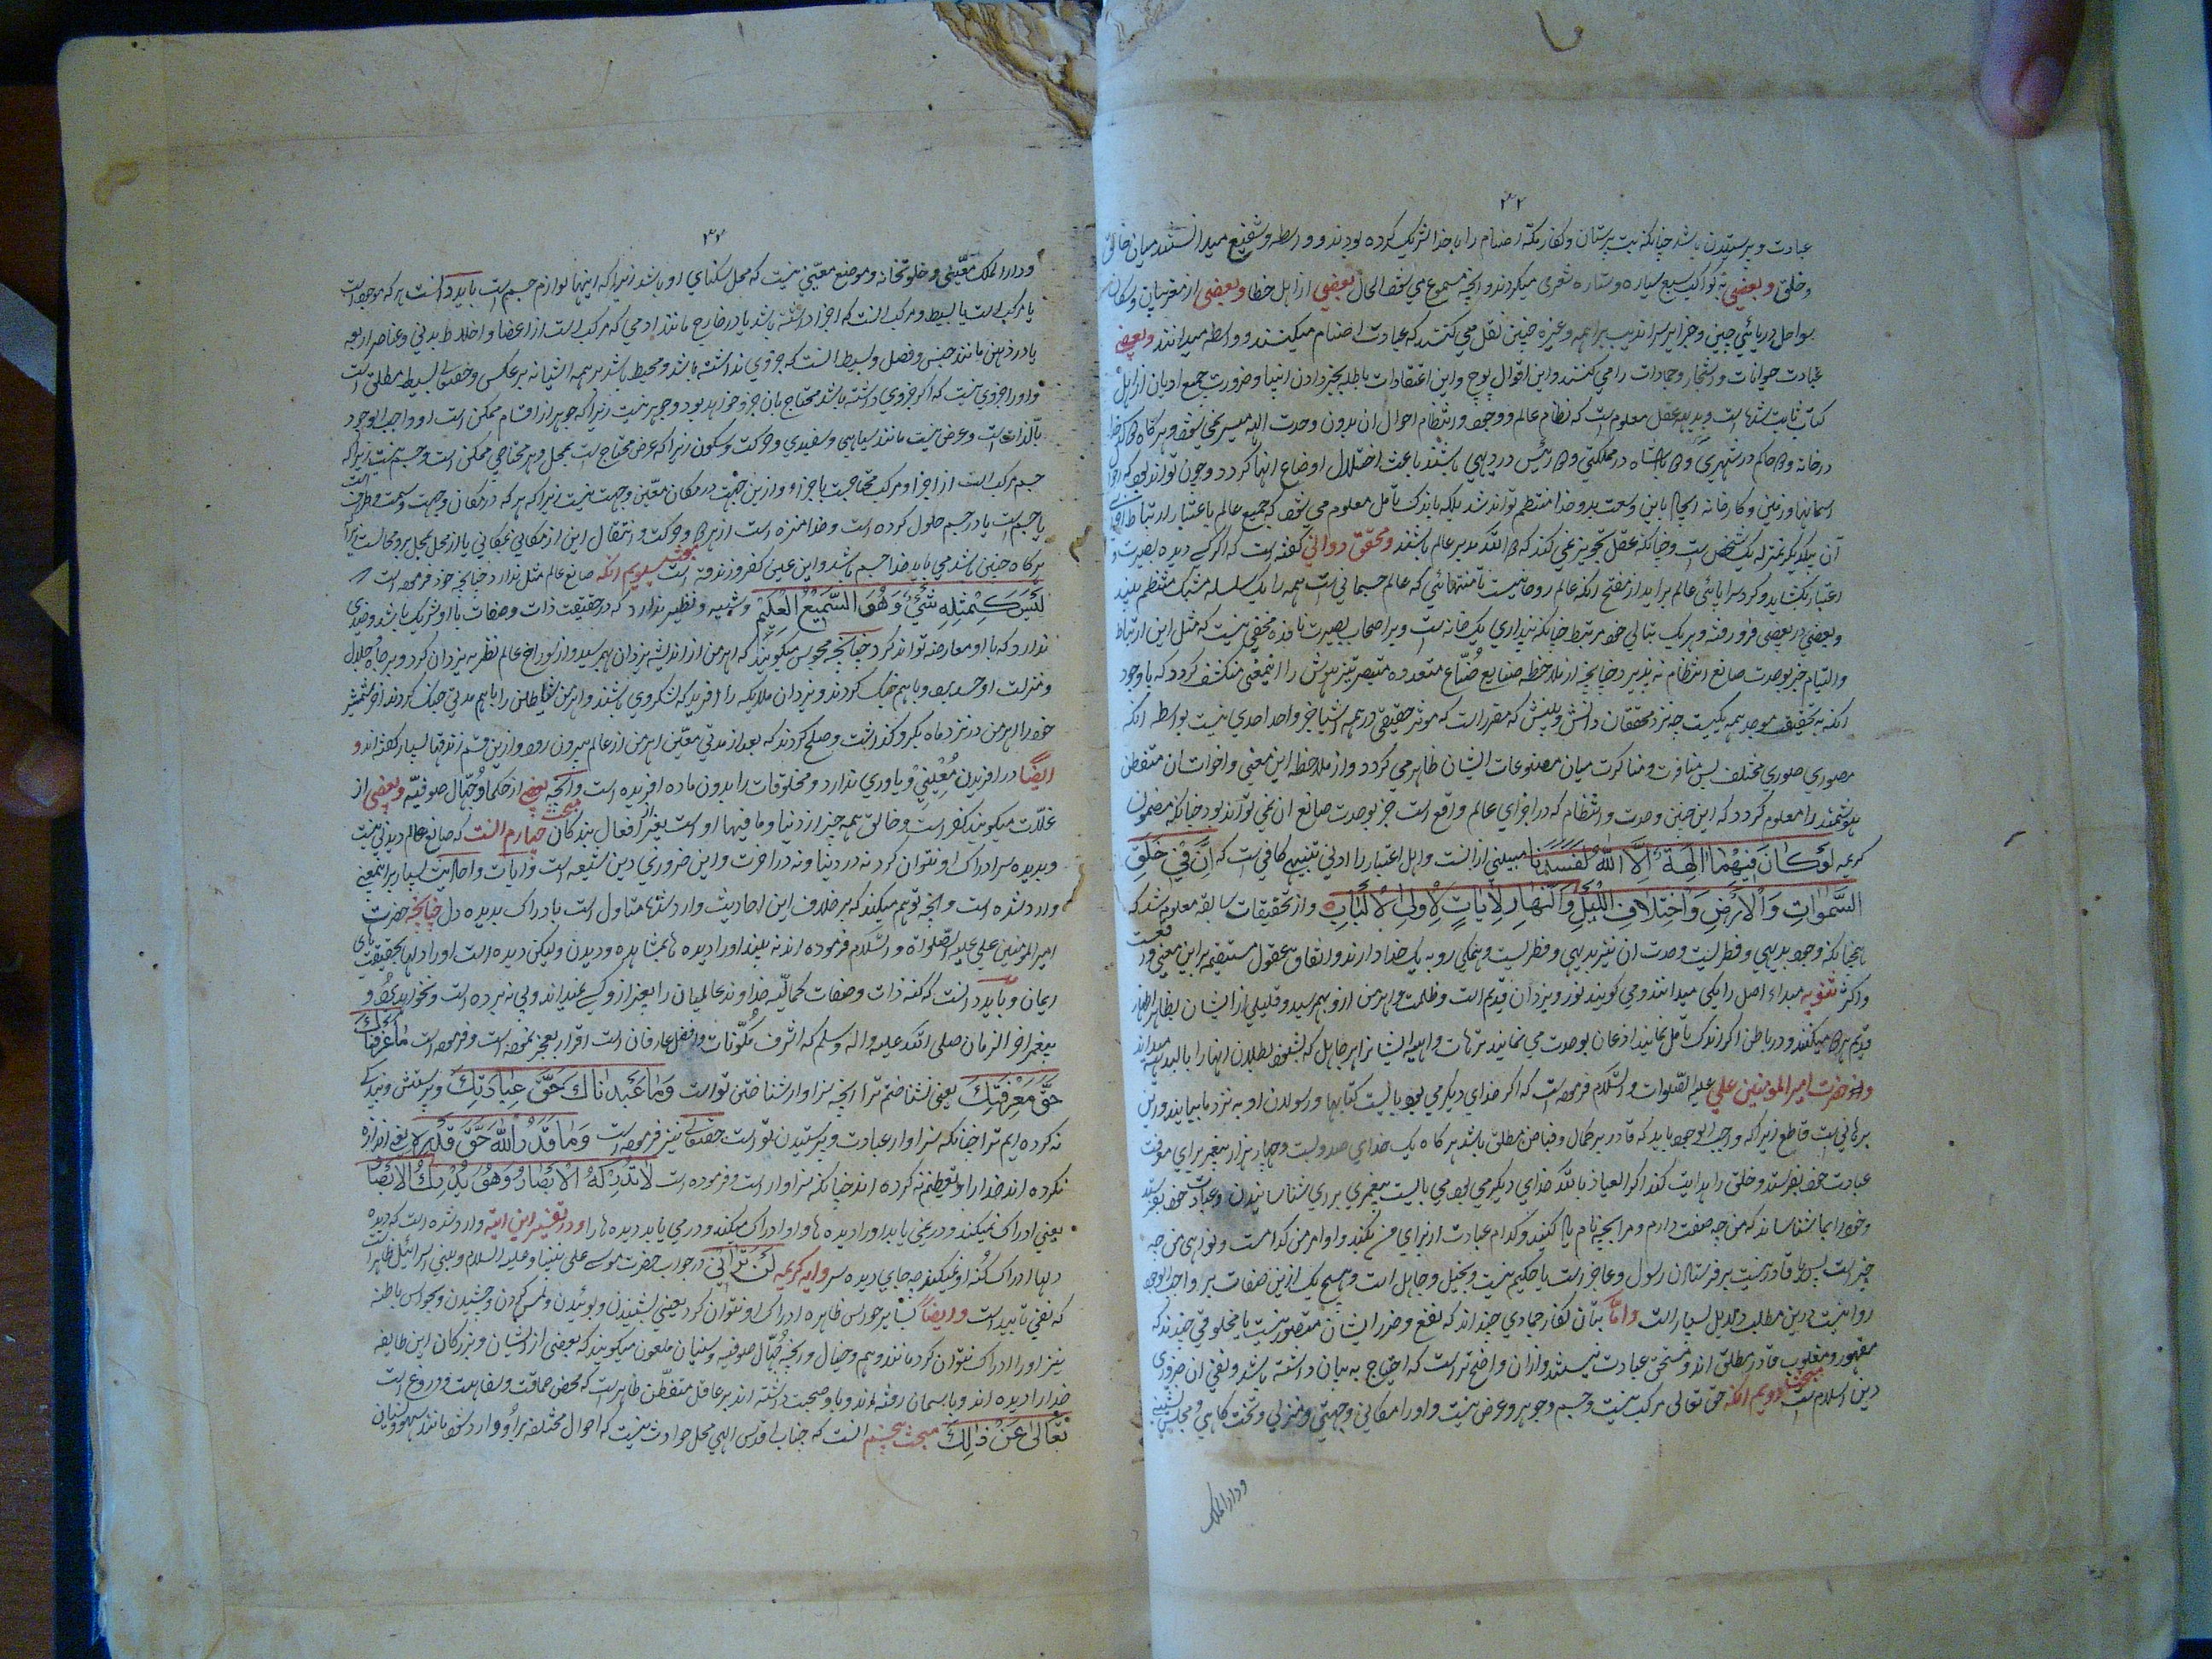 ۳۲
عبادت و پرستیدن باشد چنانکه بت پرستان و کفار مکه اصنام را با خدا شریک کرده بودند و واسطه و شفیع میدانستند میان خالق
و خلق و بعضی بکواکب سبع سیاره و ستاره شعری میکردند و آنچه مسموع می شود الحال بعضی از اهل خطا و بعضی از مغربیان و
سواحل دریائی چین و جزایر سراندیب براهمه و غیره چنین نقل می کنند که عبادت اصنام میکنند و واسطه میدانند و بعضی
عبادت حیوانات و اشجار و جمادات را می کنند و این اقوال پوچ و این اعتقادات باطله بخبر دادن انبیا و ضرورت جمیع ادیان از اهل
کتاب ثابت شده است و بدیهه عقل معلوم است که نظام عالم و وجود و انتظام احوال آن بدون وحدت اله میسر نمی شود و هرگاه دو کدخدا
در خانه و دو حاکم در شهری و دو پادشاه در مملکتی و دو رئیس در دیهی باشند باعث اختلال اوضاع آنها گردد و چون تواند بود که احوال
آسمانها و زمین و کارخانه ایجاد باین وسعت بدو خدا منتظم تواند شد بلکه باندک تأمل معلوم می شود که جمیع عالم باعتبار ارتباط اجزای
آن بیکدیگر بمنزله یک شخص است و چنانکه عقل تجویز نمی کند که دو الله مدبر عالم باشند و محقق دوانی گفته است که اگر کسی دیده بصیرت و
اعتبار بگشاید و گرد سراپائی عالم برآید از مفتح آنکه عالم روحانیست تا منتهائی که عالم جسمانی است همه را یک سلسله مشبک منتظم بیند
و بعضی در بعضی فرو رفته و هر یک بتالی خود مرتبط چنانکه پنداری یک خانه است و بر اصحاب بصیرت نافذه مخفی نیست که مثل این ارتباط
و التیام جز بوحدت صانع انتظام نه پذیرد چنانچه از ملاحظه صنایع صنّاع متعدده متبصر تیز هوش را اینمعنی منکشف گردد که با وجود
آنکه به تحقیق موجد همه یکیست چه نزد محققان دانش و بینش که مقرر است که مؤثر حقیقی در همه اشیا جز واحد احدی نیست بواسطه آنکه
مصدری صوری مختلف پس منافرت و مناکرت میان مصنوعات ایشان ظاهر می گردد و از ملاحظه این معنی و اخوات آن متفطن
هوشمند را معلوم گردد که این چنین وحدت و انتظام که در اجزای عالم واقع است جز بوحدت صانع آن نمی تواند بود چنانکه مضمون
کریمه لَوْ كَانَ فِيهِمَا آلِهَةٌ إِلَّا اللَّهُ لَفَسَدَتَا مبینی از آنست و اهل اعتبار را ادنی تنبیهی کافی است که اِنَّ فِي خَلْقِ
السَّمٰوَاتِ وَالْاَرْضِ وَاخْتِلَافِ اللَّيْلِ وَالنَّهَارِ لَاٰيَاتٍ لِاُولِي الْاَلْبَابِ و از تحقیقات سابقه معلوم شد که
همچنانکه وجود بدیهی و فطریست وحدت آن نیز بدیهی و فطریست و همگی رو به یک خدا دارند و اتفاق عقول مستقیمه بر این معنی واقعست
و اکثر ثنویه مبداء اصل را یکی میدانند و می گویند نور و یزدان قدیم است و ظلمت و اهرمن ازو بهم رسید و قلیلی از ایشان بظاهر اظهار
قدم هر دو میکنند و در باطن اگر اندک تأمل نمایند اذعان بوحدت می نمایند ترهات واهیه ایشانرا هر جاهل که بشنود بطلان آنها را بالبدیهه میداند
و از حضرت امیر المؤمنین علی علیه الصلوات والسلام فرموده است که اگر خدای دیگر می بود بایست کتابها و رسولان او به نزد ما بیایند و این
برهانی است قاطع زیرا که واجب الوجود باید که قادر بر کمال و فیاض مطلق باشد هرگاه یک خدای صد و بیست و چهار هزار پیغمبر برای معرفت
عبادت خود بفرستد و خلق را هدایت کند اگر العیاذ بالله خدای دیگر می بود می بایست پیغمبری برای شناسانیدن و عبادت خود بفرستد
و خود را بما شناساند که من چه صفت دارم و مرا بچه نام یاد کنید و کدام عبادت از برای من بکنید و اوامر من کدامست و نواهی من چه
چیز است پس یا قادر نیست بر فرستادن رسول و عاجز است یا حکیم نیست و بخیل و جاهل است و هیچ یک ازین صفات بر واجب الوجود
روا نیست و درین مطلب دلایل بسیار است و امّا بتان کفار جمادی چند اند که نفع و ضرر ایشان متصور نیست یا مخلوقی چند که
مقهور و مغلوب قادر مطلق اند و مستحق عبادت نیستند و ازان واضح تر است که احتیاج به بیان داشته باشد و نفی آن ضروری
دین اسلام است مبحث دویم آنکه حق تعالی مرکب نیست و جسم و جوهر و عرض نیست و او را مکانی و جهتی و منزلی و تخت گاهی و مجلس نشینی
ودارالملک
۳۳
و دارالملک معیّنی و خلوتخانه و موضع معیّنی نیست که محل سکنای او باشد زیرا که اینها لوازم جسم است باید دانست هر که موجود است
یا مرکب است یا بسیط و مرکب آنست که اجزا داشته باشد یا در خارج مانند آدمی که مرکب است از اعضا و اخلاط بدنی و عناصر اربعه
یا در ذهن مانند جنس و فصل و بسیط آنست که جزوی نداشته باشد و محیط باشد بر همه اشیا نه برعکس و حقتعالی بسیط مطلق است
و او را جزوی نیست که اگر جزوی داشته باشد محتاج بان جزو خواهد بود و جوهر نیست زیرا که جوهر از اقسام ممکن است او واجب الوجود
بالذات است و عرض نیست مانند سیاهی و سفیدی و حرکت و سکون زیرا که عرض محتاج است بمحل و هر محتاجی ممکن است و جسم نیست زیرا که
جسم مرکب است از اجزا و مرکب محتاجست باجزاء و ازین جهت در مکان معیّن و جهت نیست زیرا که هر که در مکان و جهت و سمت و طرف است
یا جسم است یا در جسم حلول کرده است و خدا منزه است از هر دو و حرکت و انتقال این از مکانی بمکانی یا از محل بمحل برو محالست زیرا
هرگاه چنین باشد می باید خدا جسم باشد و این عین کفر و زندقه است مبحث سیویم آنکه صانع عالم مثل ندارد چنانچه خود فرموده است
لَيْسَ كَمِثْلِهِ شَيْءٌ وَهُوَ السَّمِيعُ الْعَلِيمُ و شبیه و نظیر ندارد که در حقیقت ذات و صفات با او شریک باشد و ضدی
ندارد که با او معارضه تواند کرد چنانچه مجوس میگویند که اهرمن از اندیشه یزدان بهم رسید و از سوراخ عالم نظر به یزدان کرد و بر جاه و جلال
و منزلت او حسد برد و باهم جنگ کردند و یزدان ملایکه را آفرید که لشکر وی باشند و اهرمن شیاطین را باهم مدتی جنگ کردند آخر شمشیر
خود را اهرمن در نزد ماه بگرو گذاشت و صلح کردند که بعد از مدتی معیّن اهرمن از عالم بیرون رود و ازین قسم زندقها بسیار گفته اند و
ایضاً در آفریدن مُعینی و یاوری ندارد و مخلوقات را بدون ماده آفریده است و آنچه بعضی از حکما و جُهّال صوفیّه و بعضی از
غلات میگویند کفر است و خالق همه چیز از دنیا و ما فیها او است بغیر از افعال بندگان مبحث چهارم آنست که صانع عالم دیدنی نیست
و بدیده سر ادراک او نتوان کرد نه در دنیا و نه در آخرت و این ضروری دین شیعه است و آیات و احادیث بسیار بر اینمعنی
وارد شده است و آنچه توهم میکنند که بر خلاف این احادیث وارد شده متاول است بادراک بدیده دل چنانچه حضرت
امیر المؤمنین علی علیه الصلواة والسلام فرموده اند نه بیند او را دیده ها بمشاهده و دیدن ولیکن دیده است او را دلها بحقیقت‌های
ایمان و باید دانست که کنه ذات و صفات کمالیّه خداوند عالمیان را بغیر از وی کسی نمیداند و پی نبرده است و نخواهد برد و
پیغمبر آخر الزمان صلی الله علیه واله وسلم که اشرف مکوّنات و افضل عارفان است اقرار بعجز نموده است و فرموده است مَاعَرَفْنَاكَ
حَقَّ مَعْرِفَتِكَ یعنی نشناختم ترا آنچه سزاوار شناختن تو است وَمَا عَبَدْنَاكَ حَقَّ عِبَادَتِكَ و پرستش و بندگی
نه کرده ایم ترا چنانکه سزاوار عبادت و پرستیدن تو است حقتعالی نیز فرموده است وَمَا قَدَرُوا اللّٰهَ حَقَّ قَدْرِهِ یعنی اندازه
نکرده اند خدا را و تعظیم نه کرده اند چنانکه سزاوار است و فرموده است لَا تُدْرِكُهُ الْاَبْصَارُ وَهُوَ يُدْرِكُ الْاَبْصَارَ
یعنی ادراک نمیکند و در نمی یابد او را دیده ها و او ادراک میکند و در می یابد دیده ها را و در تفسیر این آیه وارد شده است که دیده
دلها ادراک کُنه او نمیکند چه جای دیده سر و آیه کریمه لَنْ تَرَانِي در جواب حضرت موسی علی نبینا و علیه السلام و بنی اسرائیل ظاهر است
که نفی تأبید است و ایضاً بسایر حواس ظاهره ادراک او نتوان کرد یعنی بشنیدن و بوئیدن و لمس کردن و چشیدن و بحواس باطنه
نیز او را ادراک نتوان کرد مانند وهم و خیال و آنچه جُهّال صوفیه و سنیان ملعون میگویند که بعضی از ایشان و بزرگان این طایفه
خدا را دیده اند و بآسمان رفته اند و باو صحبت داشته اند بر عاقل متفطّن ظاهر است که محض حماقت و سفاهت و دروغ است
تَعَالَىٰ عَنْ ذٰلِكَ مبحث پنجم آنست که جناب اقدس الهی محل حوادث نیست که احوال مختلفه بر او وارد شود مانند سهو و نسیان